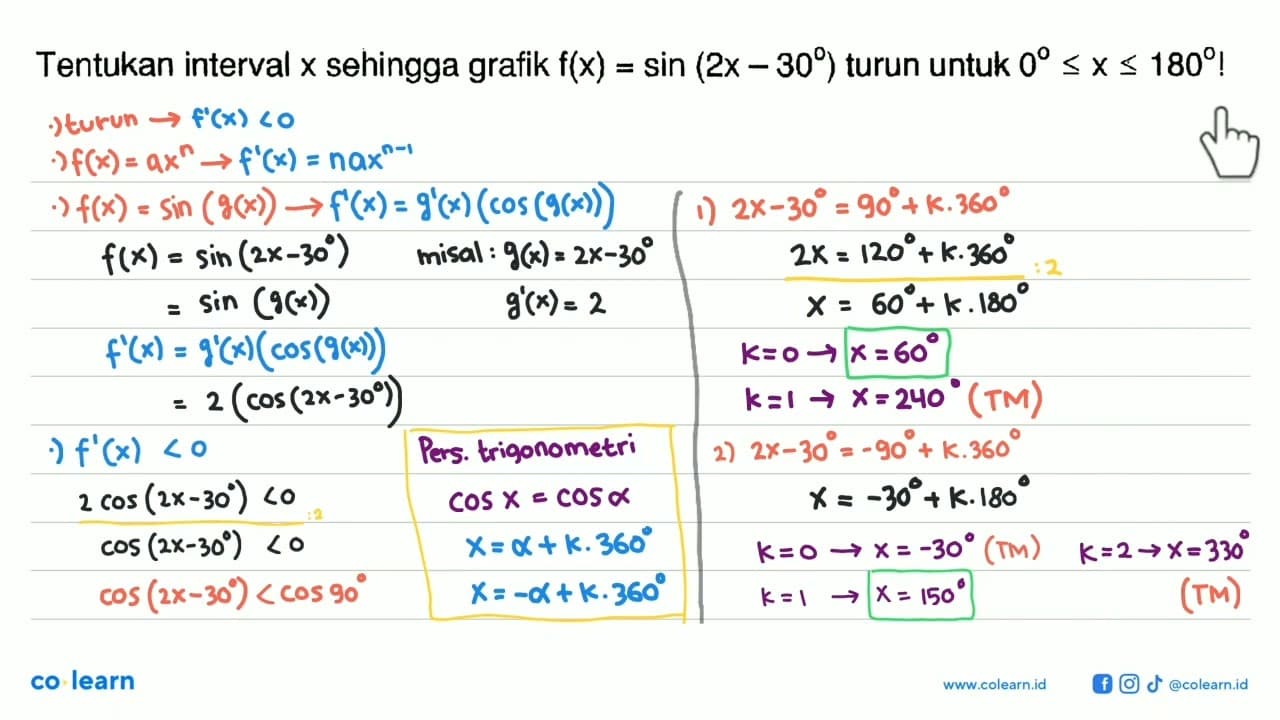 Tentukan interval x sehingga grafik f(x) = sin (2x – 30⁰) turun untuk 0⁰ ≤ x ≤ 180⁰!
·) turun → f'(x) < 0
·) f(x) = axⁿ → f'(x) = naxⁿ⁻¹
·) f(x) = sin (g(x)) → f'(x) = g'(x)(cos(g(x)))
f(x) = sin (2x-30°)
misal : g(x) = 2x-30°
= sin (g(x))
g'(x) = 2
f'(x) = g'(x)(cos(g(x)))
= 2 (cos(2x-30°))
·) f'(x) < 0
2 cos (2x-30°) < 0
:2
cos (2x-30°) < 0
cos (2x-30°) < cos 90°
Pers. trigonometri
cos x = cos α
x = α + k. 360°
x = -α + k. 360°
1) 2x-30° = 90° + k. 360°
2x = 120° + k. 360°
:2
x = 60° + k. 180°
k=0 → x = 60°
k=1 → x = 240° (TM)
2) 2x-30° = -90° + k. 360°
x = -30° + k. 180°
k=0 → x = -30° (TM) k=2 → x = 330°
k=1 → x = 150° (TM)
co·learn
www.colearn.id
@colearn.id